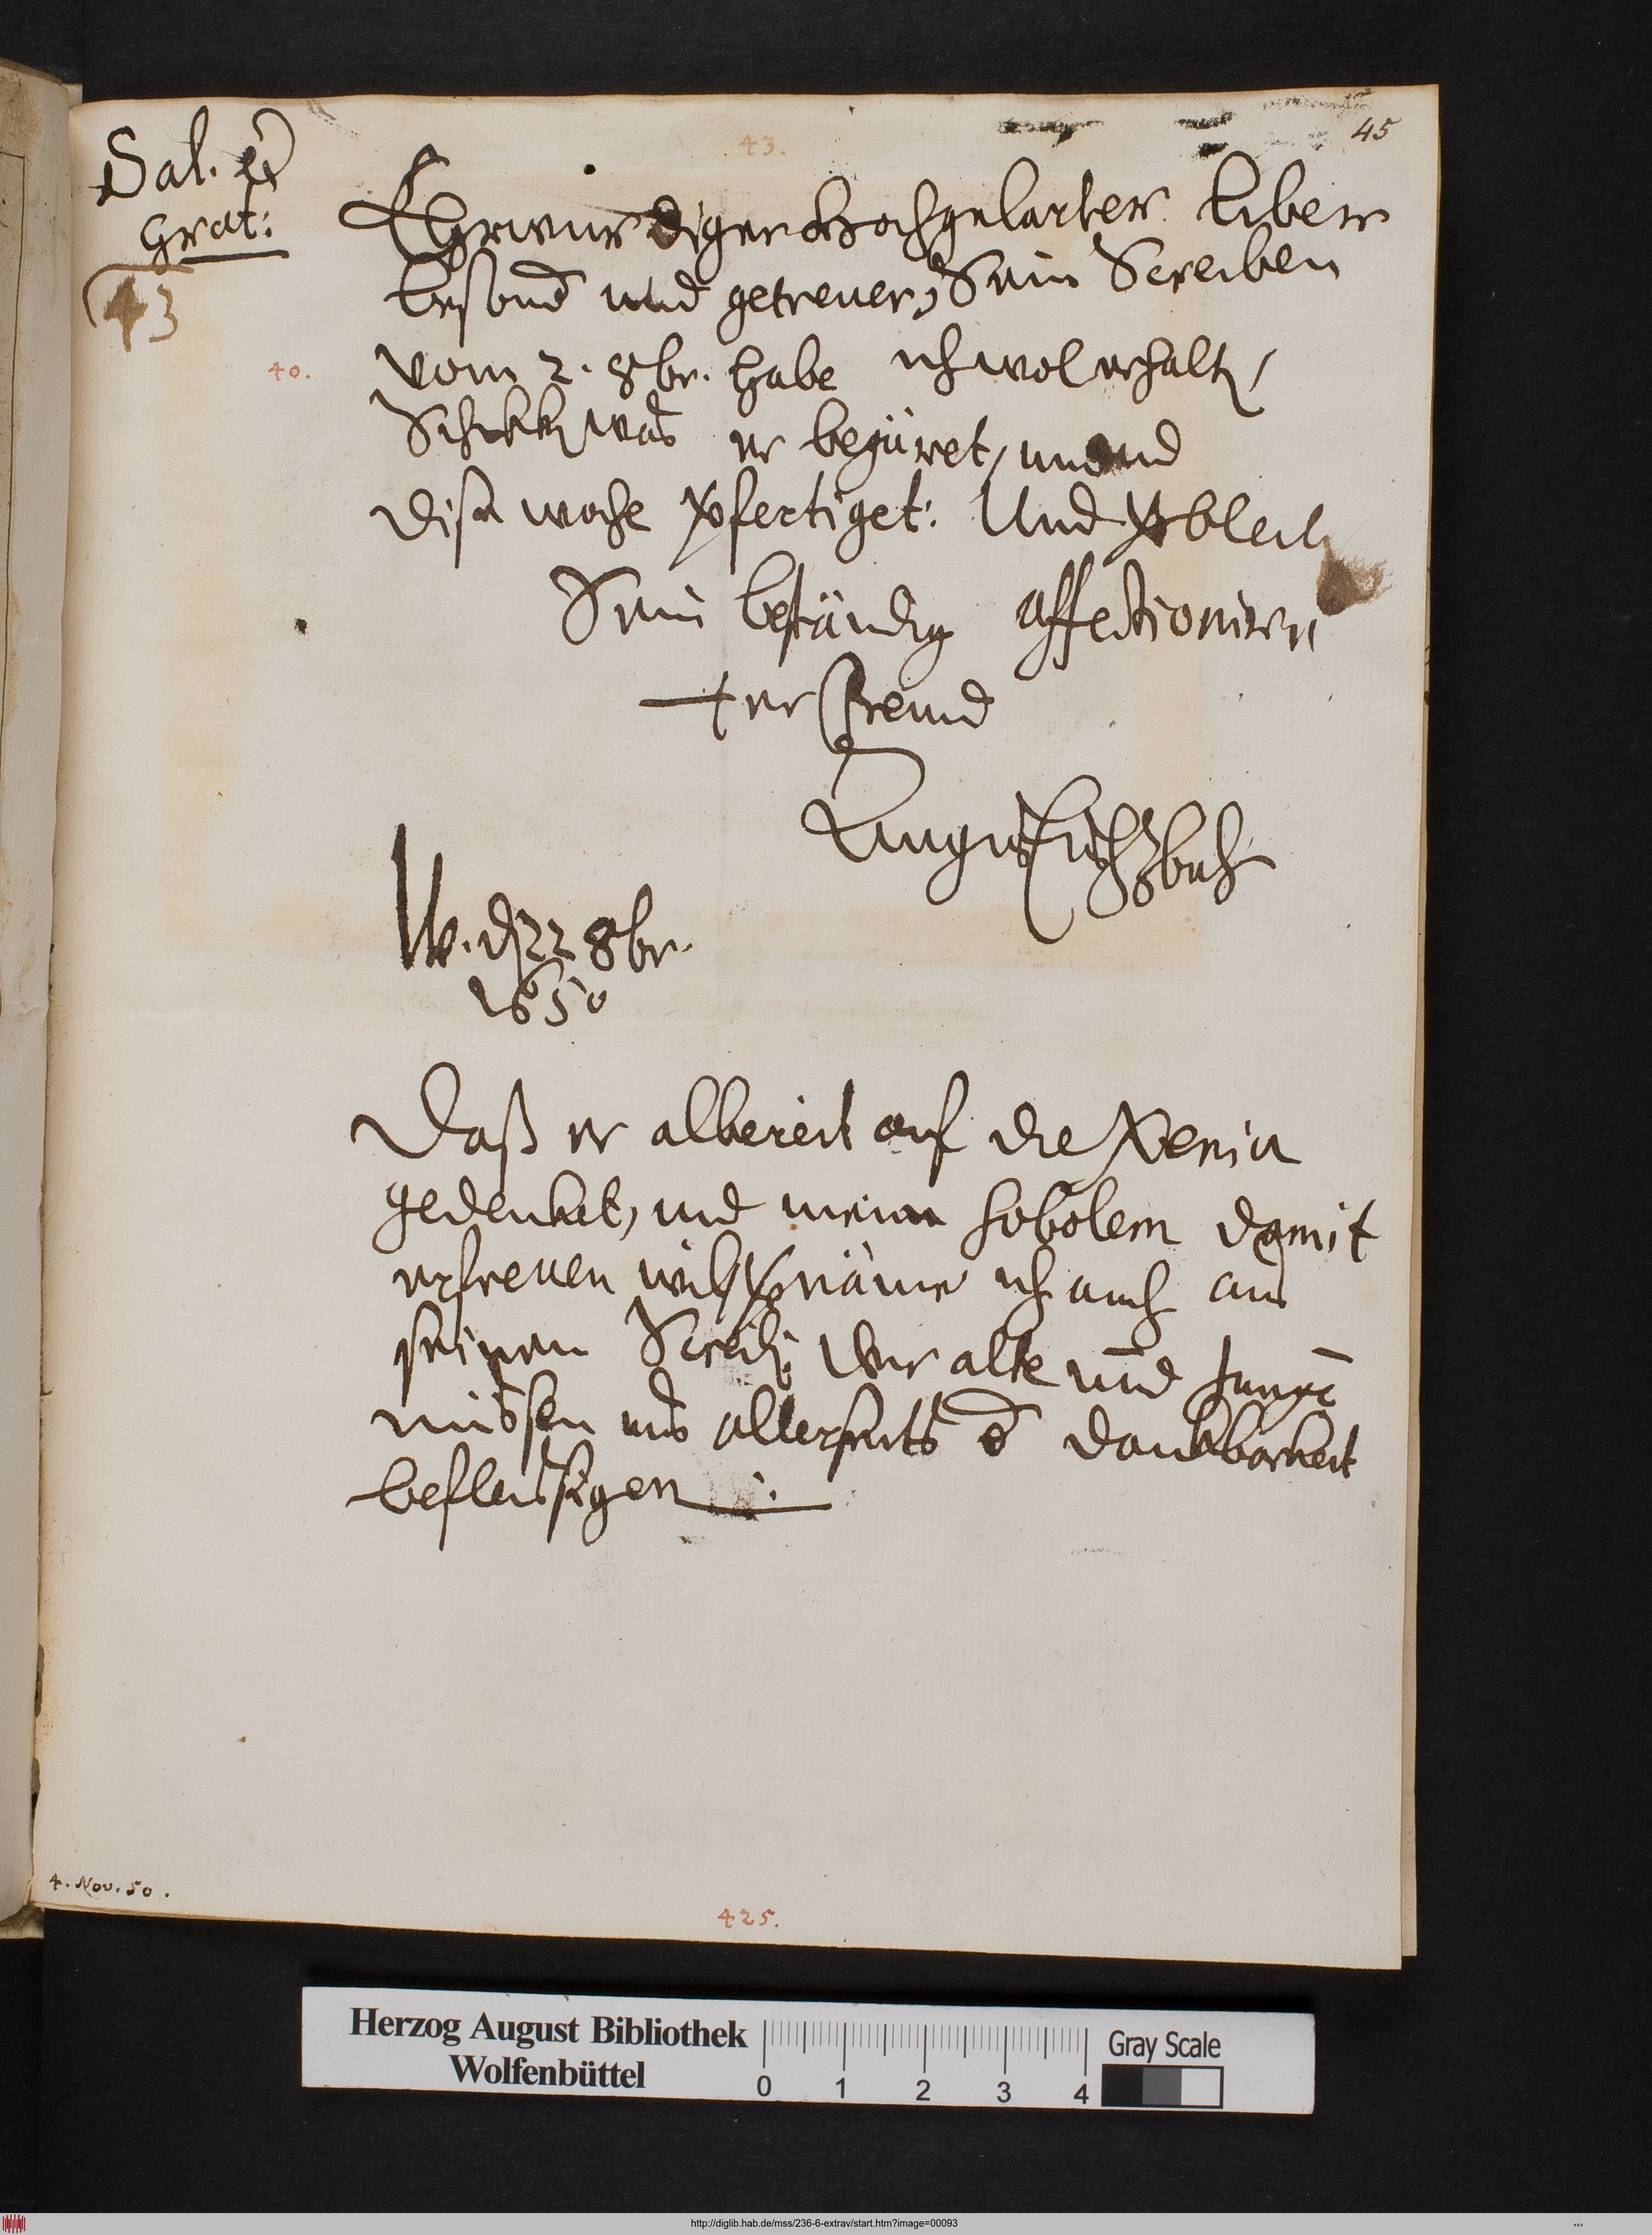 43.
45
Sal. et
Grat:
43
Ehrwurdiger Hochgelarter Liber
besond und getrewer, Sein Screiben
40.
vom 2. 8br. habe ich wol erhalt,
Schikk was er begäret, und
dise woche verfertiget: Und verbleib
Sein beständig affectionir
ter Freund
Augustus HzbuL
W. d 22 8br.
1650
Daß er albereit auf die Xenia
gedenket, und meine sobolem damit
erfreuen wil, vernäme ich auch aus
seinem Screib, Wir alte und junge
müssen uns allerseits d dankbarkeit
befleissigen.
4. Nov. 50.
425.
Herzog August Bibliothek
Wolfenbüttel
0 1 2 3 4
Gray Scale
http://diglib.hab.de/mss/236-6-extrav/start.htm?image=00093